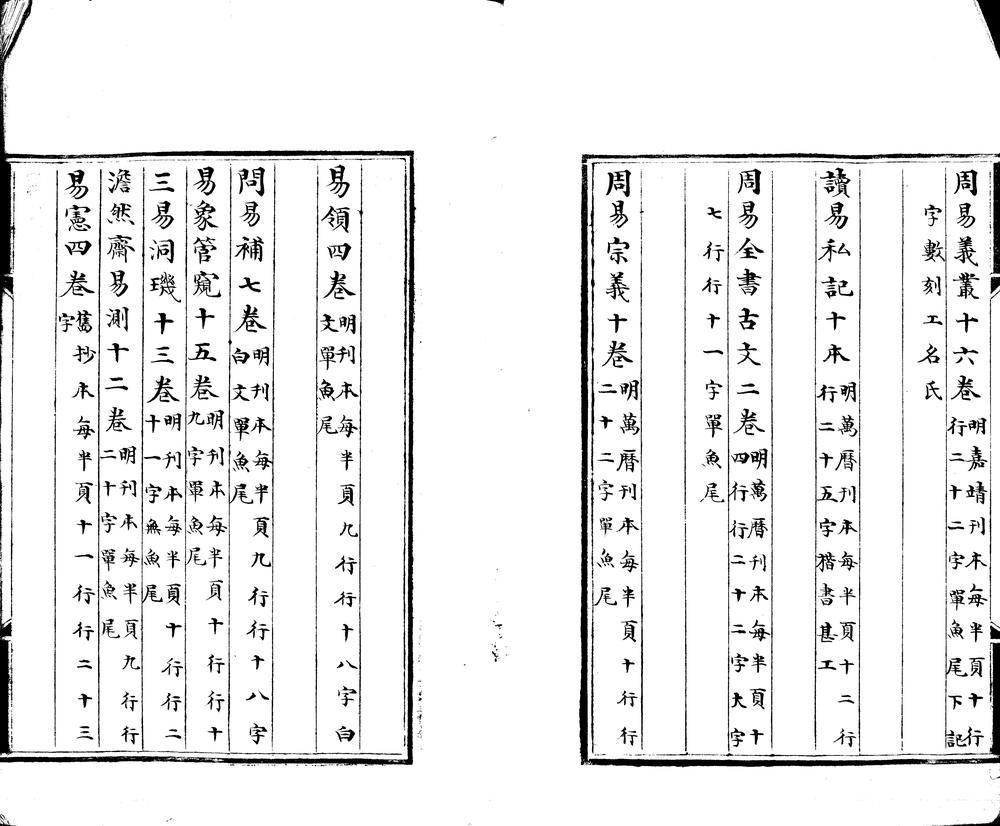 周易義叢十六卷明嘉靖刊本每半頁十行行二十二字單魚尾下記
字數刻工名氏
讀易私記十本明萬曆刊本每半頁十二行行二十五字楷書甚工
周易全書古文二卷明萬曆刊本每半頁十四行行二十二字大字
七行行十一字單魚尾
周易宗義十卷明萬曆刊本每半頁十行行二十二字單魚尾
易領四卷明刊本每半頁九行行十八字白文單魚尾
問易補七卷明刊本每半頁九行行十八字白文單魚尾
易象管窺十五卷明刊本每半頁十行行十九字單魚尾
三易洞璣十三卷明刊本每半頁十行行二十一字無魚尾
澹然齋易測十二卷明刊本每半頁九行行二十字單魚尾
易憲四卷舊抄本每半頁十一行行二十三字